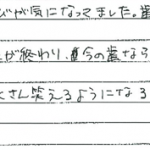 びが気になってました。歯
が終わり、今の歯なら
くさん笑えるようになる